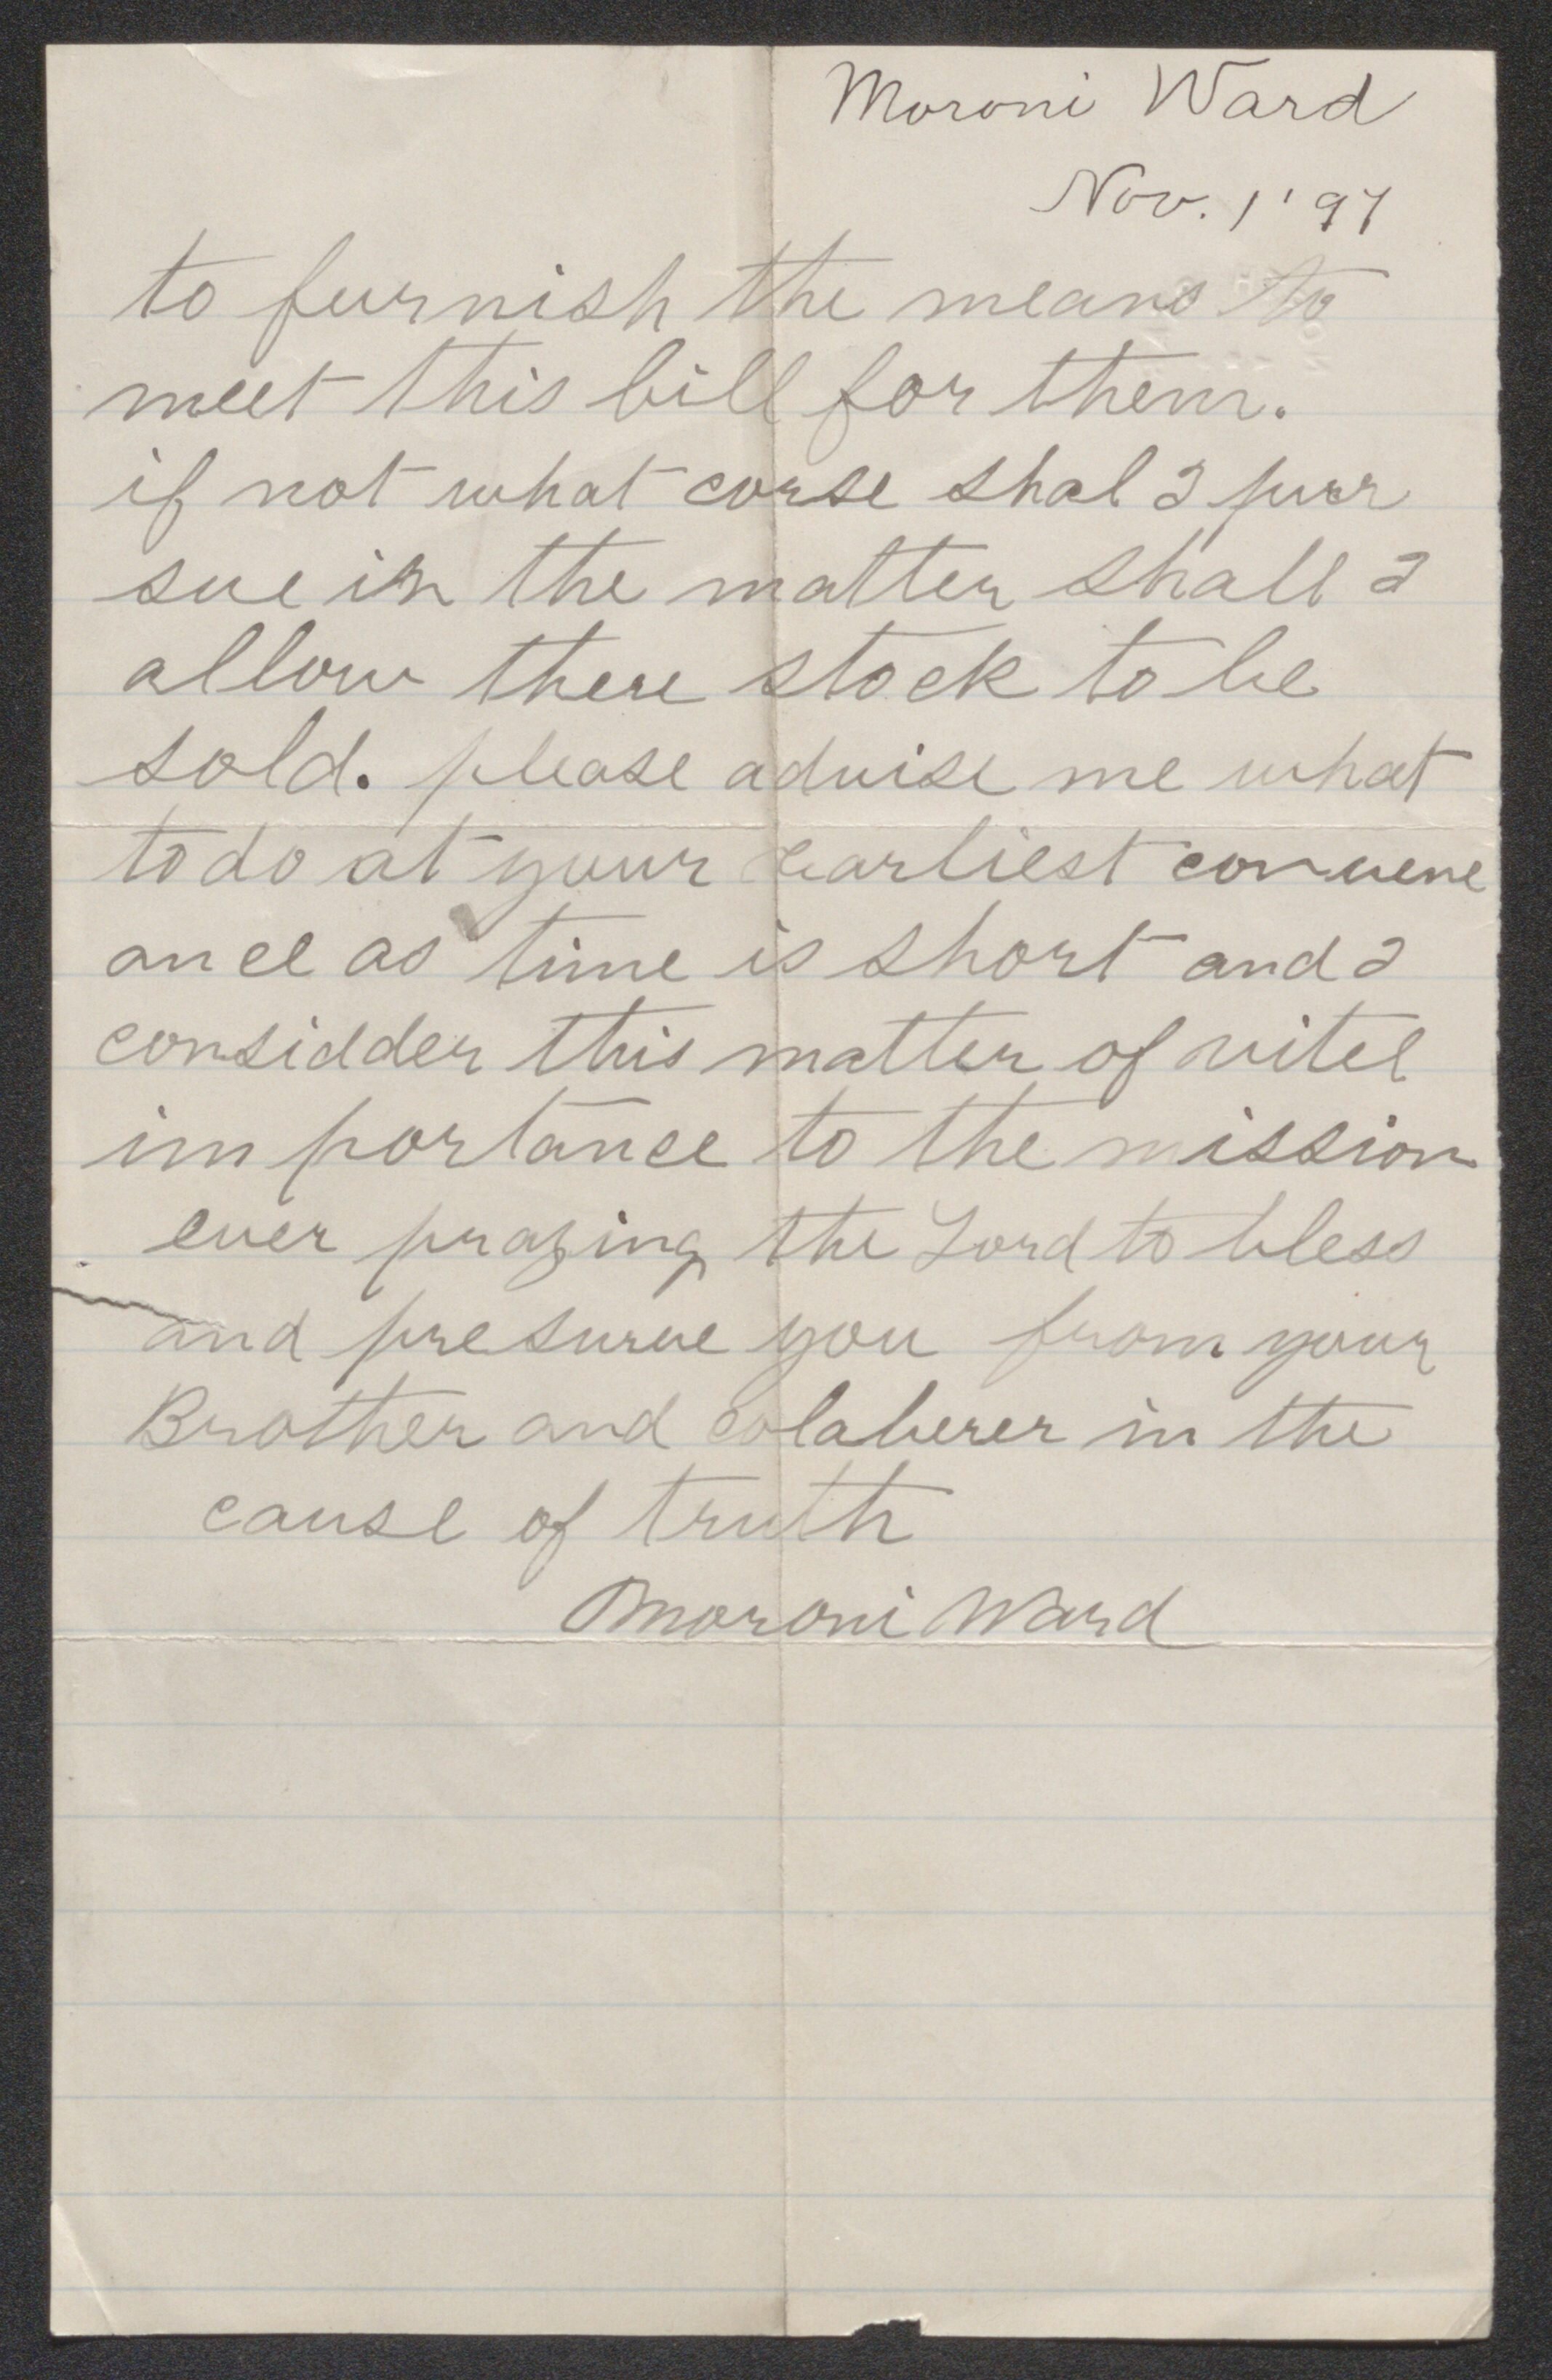 Moroni Ward
Nov. 1 '97
to furnish the means to
meet this bill for them.
if not what corse shal I pur
sue in the matter shall I
allow there stock to be
sold. please advise me what
to do at your earliest convene
ance as time is short and I
considder this matter of vitel
importance to the mission
ever praying the Lord to bless
and presurve you from your
Brother and colaberer in the
cause of truth
Moroni Ward